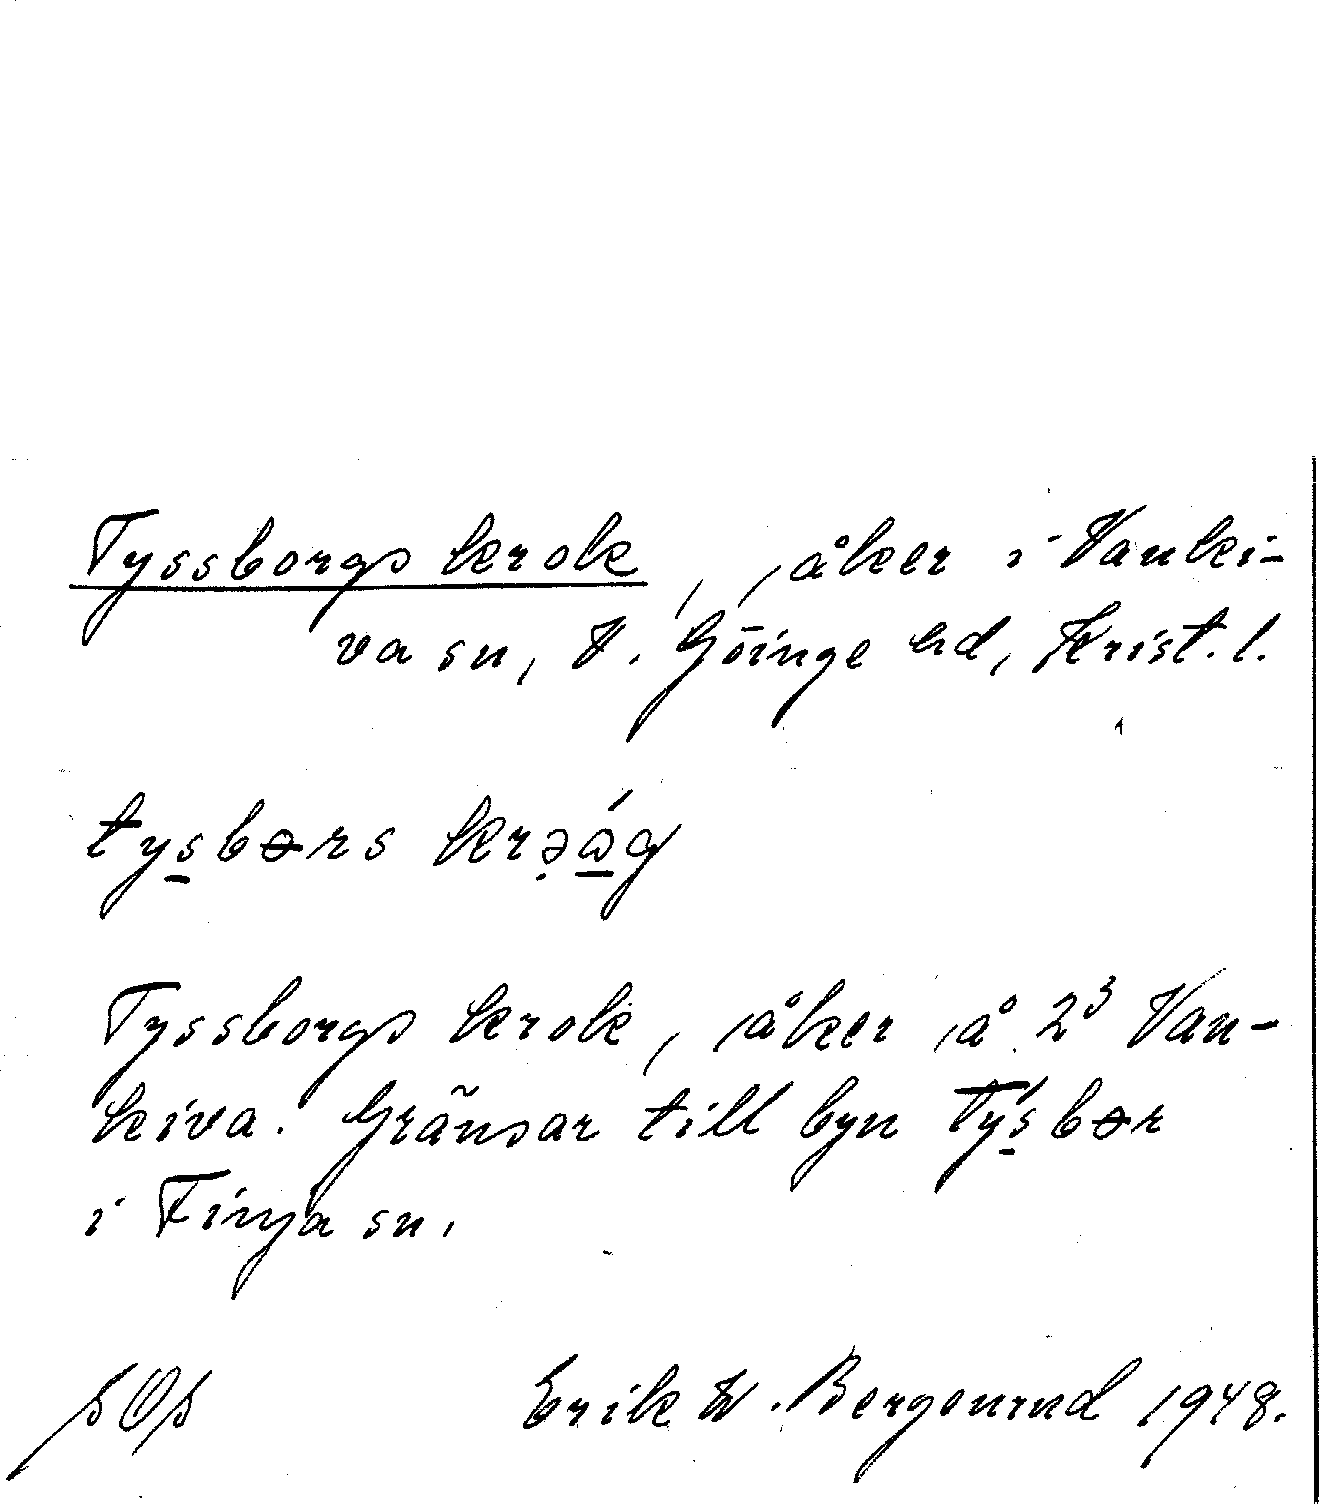 Tyssborgs krok, åker i Vanki-
va sn, V. Göinge hd, Krist. l.
tysbɵrs
Tyssborgs krok, åker å 2³ Van-
kiva. Gränsar till byn Týsbɵr
i Finja sn.
Erik W. Bergenrud 1948.